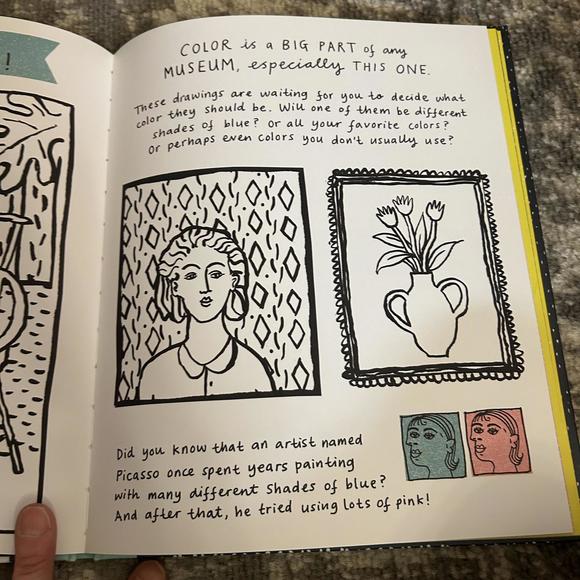 !
COLOR is a BIG PART of any
MUSEUM, especially THIS ONE.
These drawings are waiting for you to decide what
color they should be. Will one of them be different
shades of blue? Or all your favorite colors?
Or perhaps even colors you don't usually use?
Did you know that an artist named
Picasso once spent years painting
with many different shades of blue?
And after that, he tried using lots of pink!